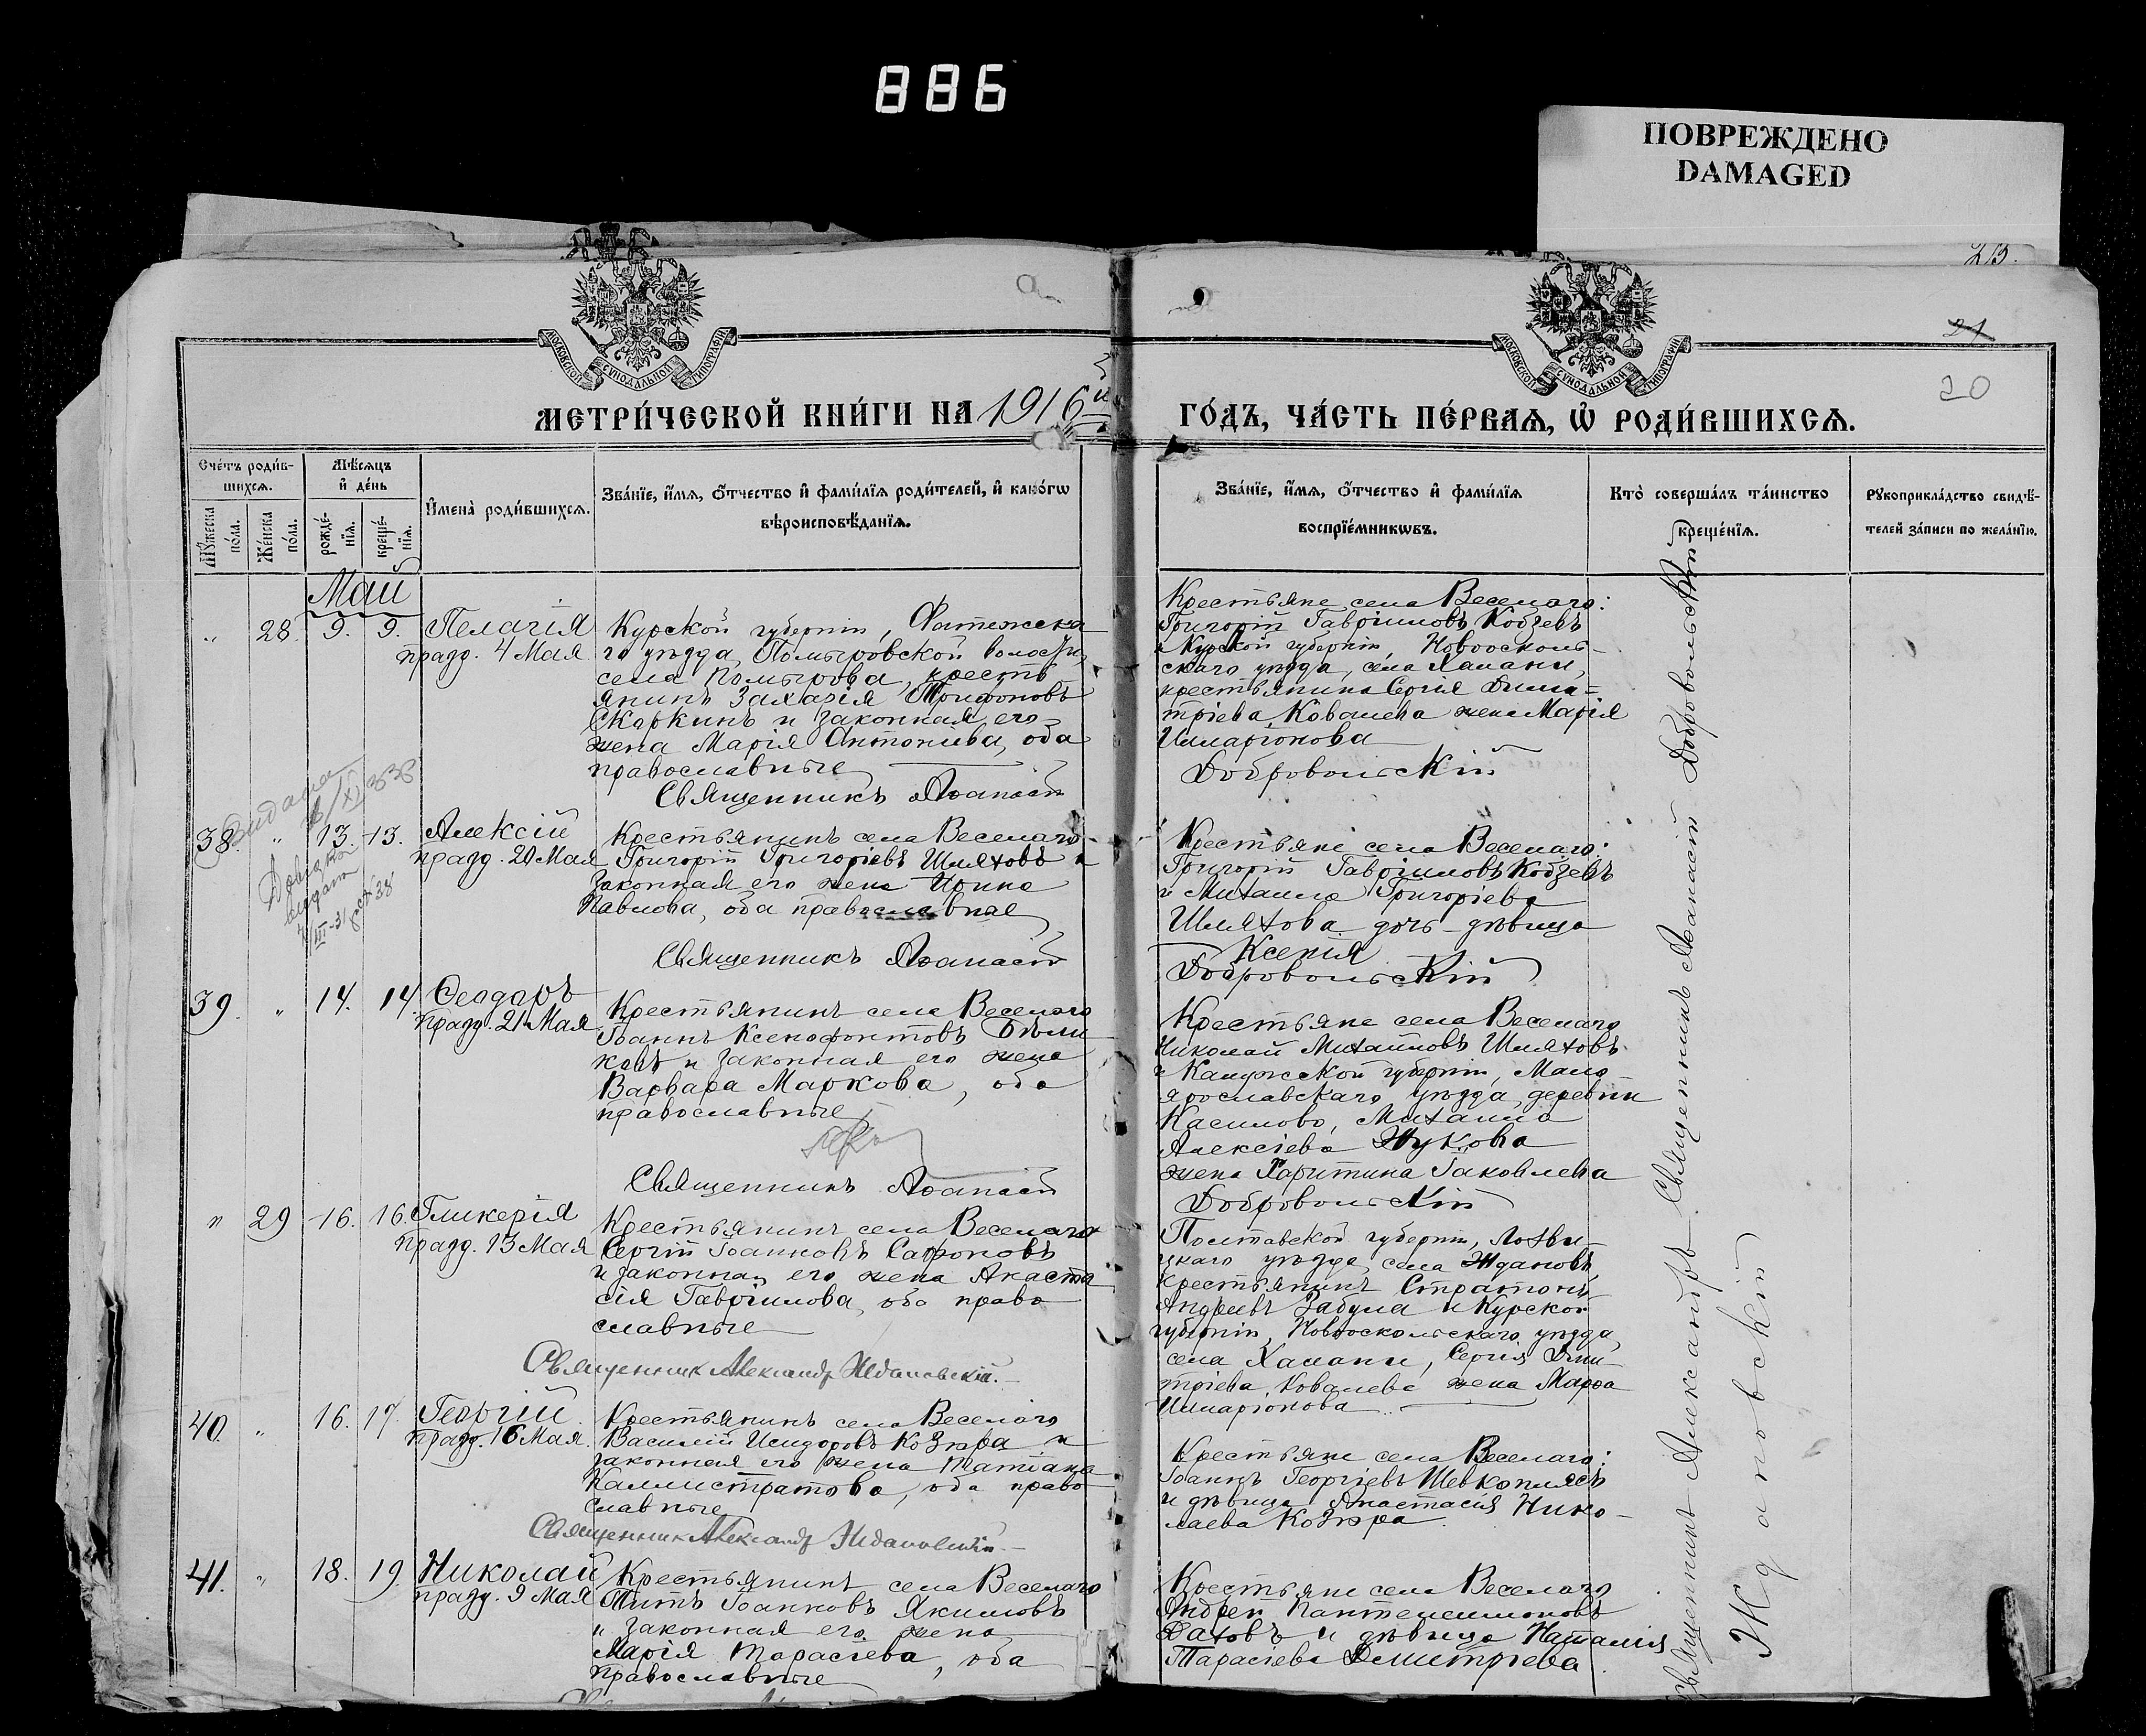 886
ПОВРЕЖДЕНО
DAMAGED
215.
21
20
МОСКОВСКОЙ СѴНОДАЛЬНОЙ ТИПОГРАФІИ
МОСКОВСКОЙ СѴНОДАЛЬНОЙ ТИПОГРАФІИ
МЕТРИ́ЧЕСКОЙ КНИ́ГИ НА 1916й
ГО́ДЪ, ЧА́СТЬ ПЕ́РВАЯ, Ѡ РОДИ́ВШИХСЯ.
Сче́тъ роди́в-
шихся.
Му́жеска по́ла.
Же́нска по́ла.
Мѣ́сяцъ
и҆ де́нь
рожде́-
нїя.
креще́-
нїя.
И҆мена̀ роди́вшихся.
Зва́нїе, и҆́мя, ѻ҆́тчество и҆ фами́лїя роди́телей, и҆ како́гѡ
вѣроисповѣ́данїя.
Зва́нїе, и҆́мя, ѻ҆́тчество и҆ фами́лїя
воспрїе́мникѡвъ.
Кто̀ соверша́лъ та́инство
креще́нїя.
Рꙋкоприкла́дство свидѣ́-
телей за́писи по жела́нїю.
Май
" 28. 9. 9. Пелагія
празд. 4 Мая
Курской губерніи, Фатежска
го уѣзда, Полыровской волости,
села Полырова, кресть
янинъ Захарія Трифоновъ
Скоркинъ и законная его
жена Марія Антонива, оба
православные
Священникъ Аѳанасій
Крестьяне села Веселаго:
Григорій Гавріиловъ Кобзевъ
и Курской губерніи, Новоосколь-
скаго уѣзда, села Халани,
крестьянина Сергія Дими-
тріева Ковалева жена Марія
Илларіонова
Добровольскій
Видана
38. " 13. 13. Алексій
празд. 20 Мая
Крестьянинъ села Веселаго
Григорій Григоріевъ Шляховъ и
законная его жена Ирина
Павлова, оба православные
Священникъ Аѳанасій
Крестьяне села Веселаго:
Григорій Гавріиловъ Кобзевъ
и Михаила Григоріева
Шляхова дочь-дѣвица
Ксенія
Добровольскій
39. " 14. 14. Ѳеодоръ
празд. 21 Мая
Крестьянинъ села Веселаго
Іоаннъ Ксенофонтовъ Бѣли
ковъ и законная его жена
Варвара Маркова, оба
православные
Священникъ Аѳанасій
Крестьяне села Веселаго
Николай Михаиловъ Шляховъ
и Калужской губерніи, Мало-
ярославскаго уѣзда, деревни
Касилово, Михаила
Алексіева Жукова
жена Харитина Іаковлева
Добровольскій
" 29 16. 16. Гликерія
празд. 13 Мая
Крестьянинъ села Веселаго
Сергій Іоанновъ Сафоновъ
и законная его жена Анаста
сія Гавріилова, оба право
славные
Священникъ Александръ Ждановскій.
Полтавской губерніи, Лохви-
цкаго уѣзда, села Ждановъ,
крестьянинъ Стратонъ
Андреевъ Забула и Курской
губерніи, Новооскольскаго уѣзда,
села Халани, Сергія Дими-
тріева Ковалева жена Марѳа
Илларіонова
40. " 16. 17. Георгій
празд. 16 Мая.
Крестьянинъ села Веселаго
Василій Исидоровъ Козыра и
законная его жена Татіана
Каллистратова, оба право
славные
Священникъ Александръ Ждановскій.
Крестьяне села Веселаго:
Іоаннъ Георгіевъ Шевкоплясъ
и дѣвица Анастасія Нико-
лаева Козыра.
41. " 18. 19. Николай
празд. 9 Мая
Крестьянинъ села Веселаго
Титъ Іоанновъ Якимовъ
и законная его жена
Марія Тарасіева, оба
православные
Крестьяне села Веселаго
Андрей Пантелеимоновъ
Даховъ и дѣвица Наталія
Тарасіева Димитріева
Священникъ Александръ Священникъ Аѳанасій Добровольскій
Ждановскій